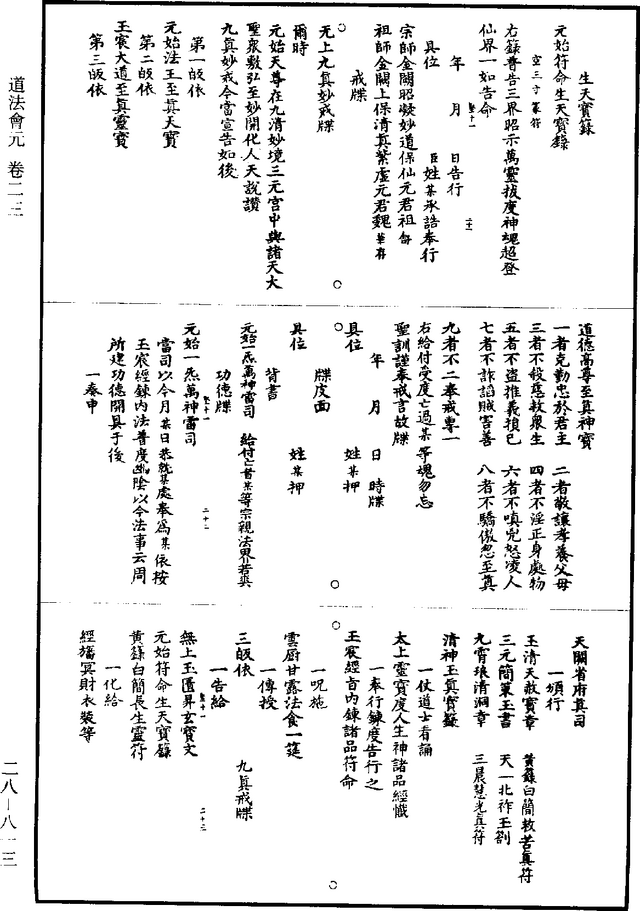 生天寶籙
元始符命生天寶籙
空三寸篆符
右籙普告三界昭示萬靈拔度神魂超登
仙界一如告命
年 月 日告行
具位 臣姓某承誥奉行
宗師金闕昭凝妙道保仙元君祖舒
祖師金闕上保清真紫虛元君魏華存
戒牒
无上九真妙戒牒
爾時
元始天尊在九清妙境三元宮中與諸天大
聖衆敷弘至妙開化人天說讚
九真妙戒今當宣告如後
第一皈依
元始法王至真天寶
第二皈依
玉宸大道至真靈寶
第三皈依
道德高尊至真神寶
一者克勤忠於君主 二者敬讓孝養父母
三者不殺慈救衆生 四者不淫正身處物
五者不盜推義損已 六者不嗔兇怒凌人
七者不詐諂賊害善 八者不驕傲忽至真
九者不二奉戒專一
右給付受度亡過某等魂勿忘
聖訓謹奉戒言故牒
年 月 日 時牒
具位 姓某押
牒皮面
具位 姓某押
背書
元始一炁萬神雷司 給付亡者某等宗親法界若與
功德牒
元始一炁萬神雷司
當司以今月某日恭就某處奉為某依按
玉宸經鍊内法普度幽陰以今法事云周
所建功德開具于後
一奏申
天闕省府真司
一頒行
玉清天赦寶章 黄籙白簡救苦真符
三元簡策玉書 天一北祚玉劄
九霄琅清洞章 三晨慧光真符
清神玉真寶籙
一仗道士看誦
太上靈寶度人生神諸品經懺
一奉行鍊度告行之
玉宸經旨内鍊諸品符命
一呪施
雲厨甘露法食一筵
一傳授
三皈依 九真戒牒
一告給
無上玉匱昇玄寶文
元始符命生天寶籙
黄籙白簡長生靈符
一化給
經旛冥財衣裝等
道法會元 卷二三
二八－八一三